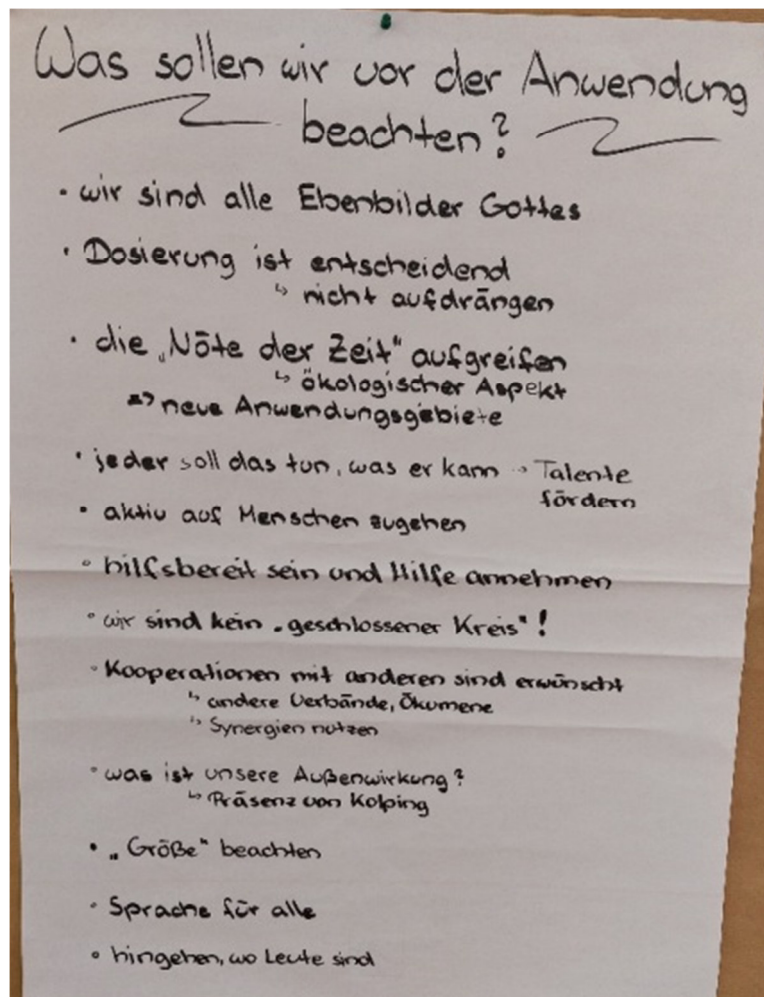 Was sollen wir vor der Anwendung
beachten?
• wir sind alle Ebenbilder Gottes
• Dosierung ist entscheidend
↳ nicht aufdrängen
• die „Nöte der Zeit" aufgreifen
↳ ökologischer Aspekt
=> neue Anwendungsgebiete
• jeder soll das tun, was er kann → Talente
fördern
• aktiv auf Menschen zugehen
• hilfsbereit sein und Hilfe annehmen
• wir sind kein „geschlossener Kreis"!
• Kooperationen mit anderen sind erwünscht
↳ andere Verbände, Ökumene
↳ Synergien nutzen
• was ist unsere Außenwirkung?
↳ Präsenz von Kolping
• „Größe" beachten
• Sprache für alle
• hingehen, wo Leute sind